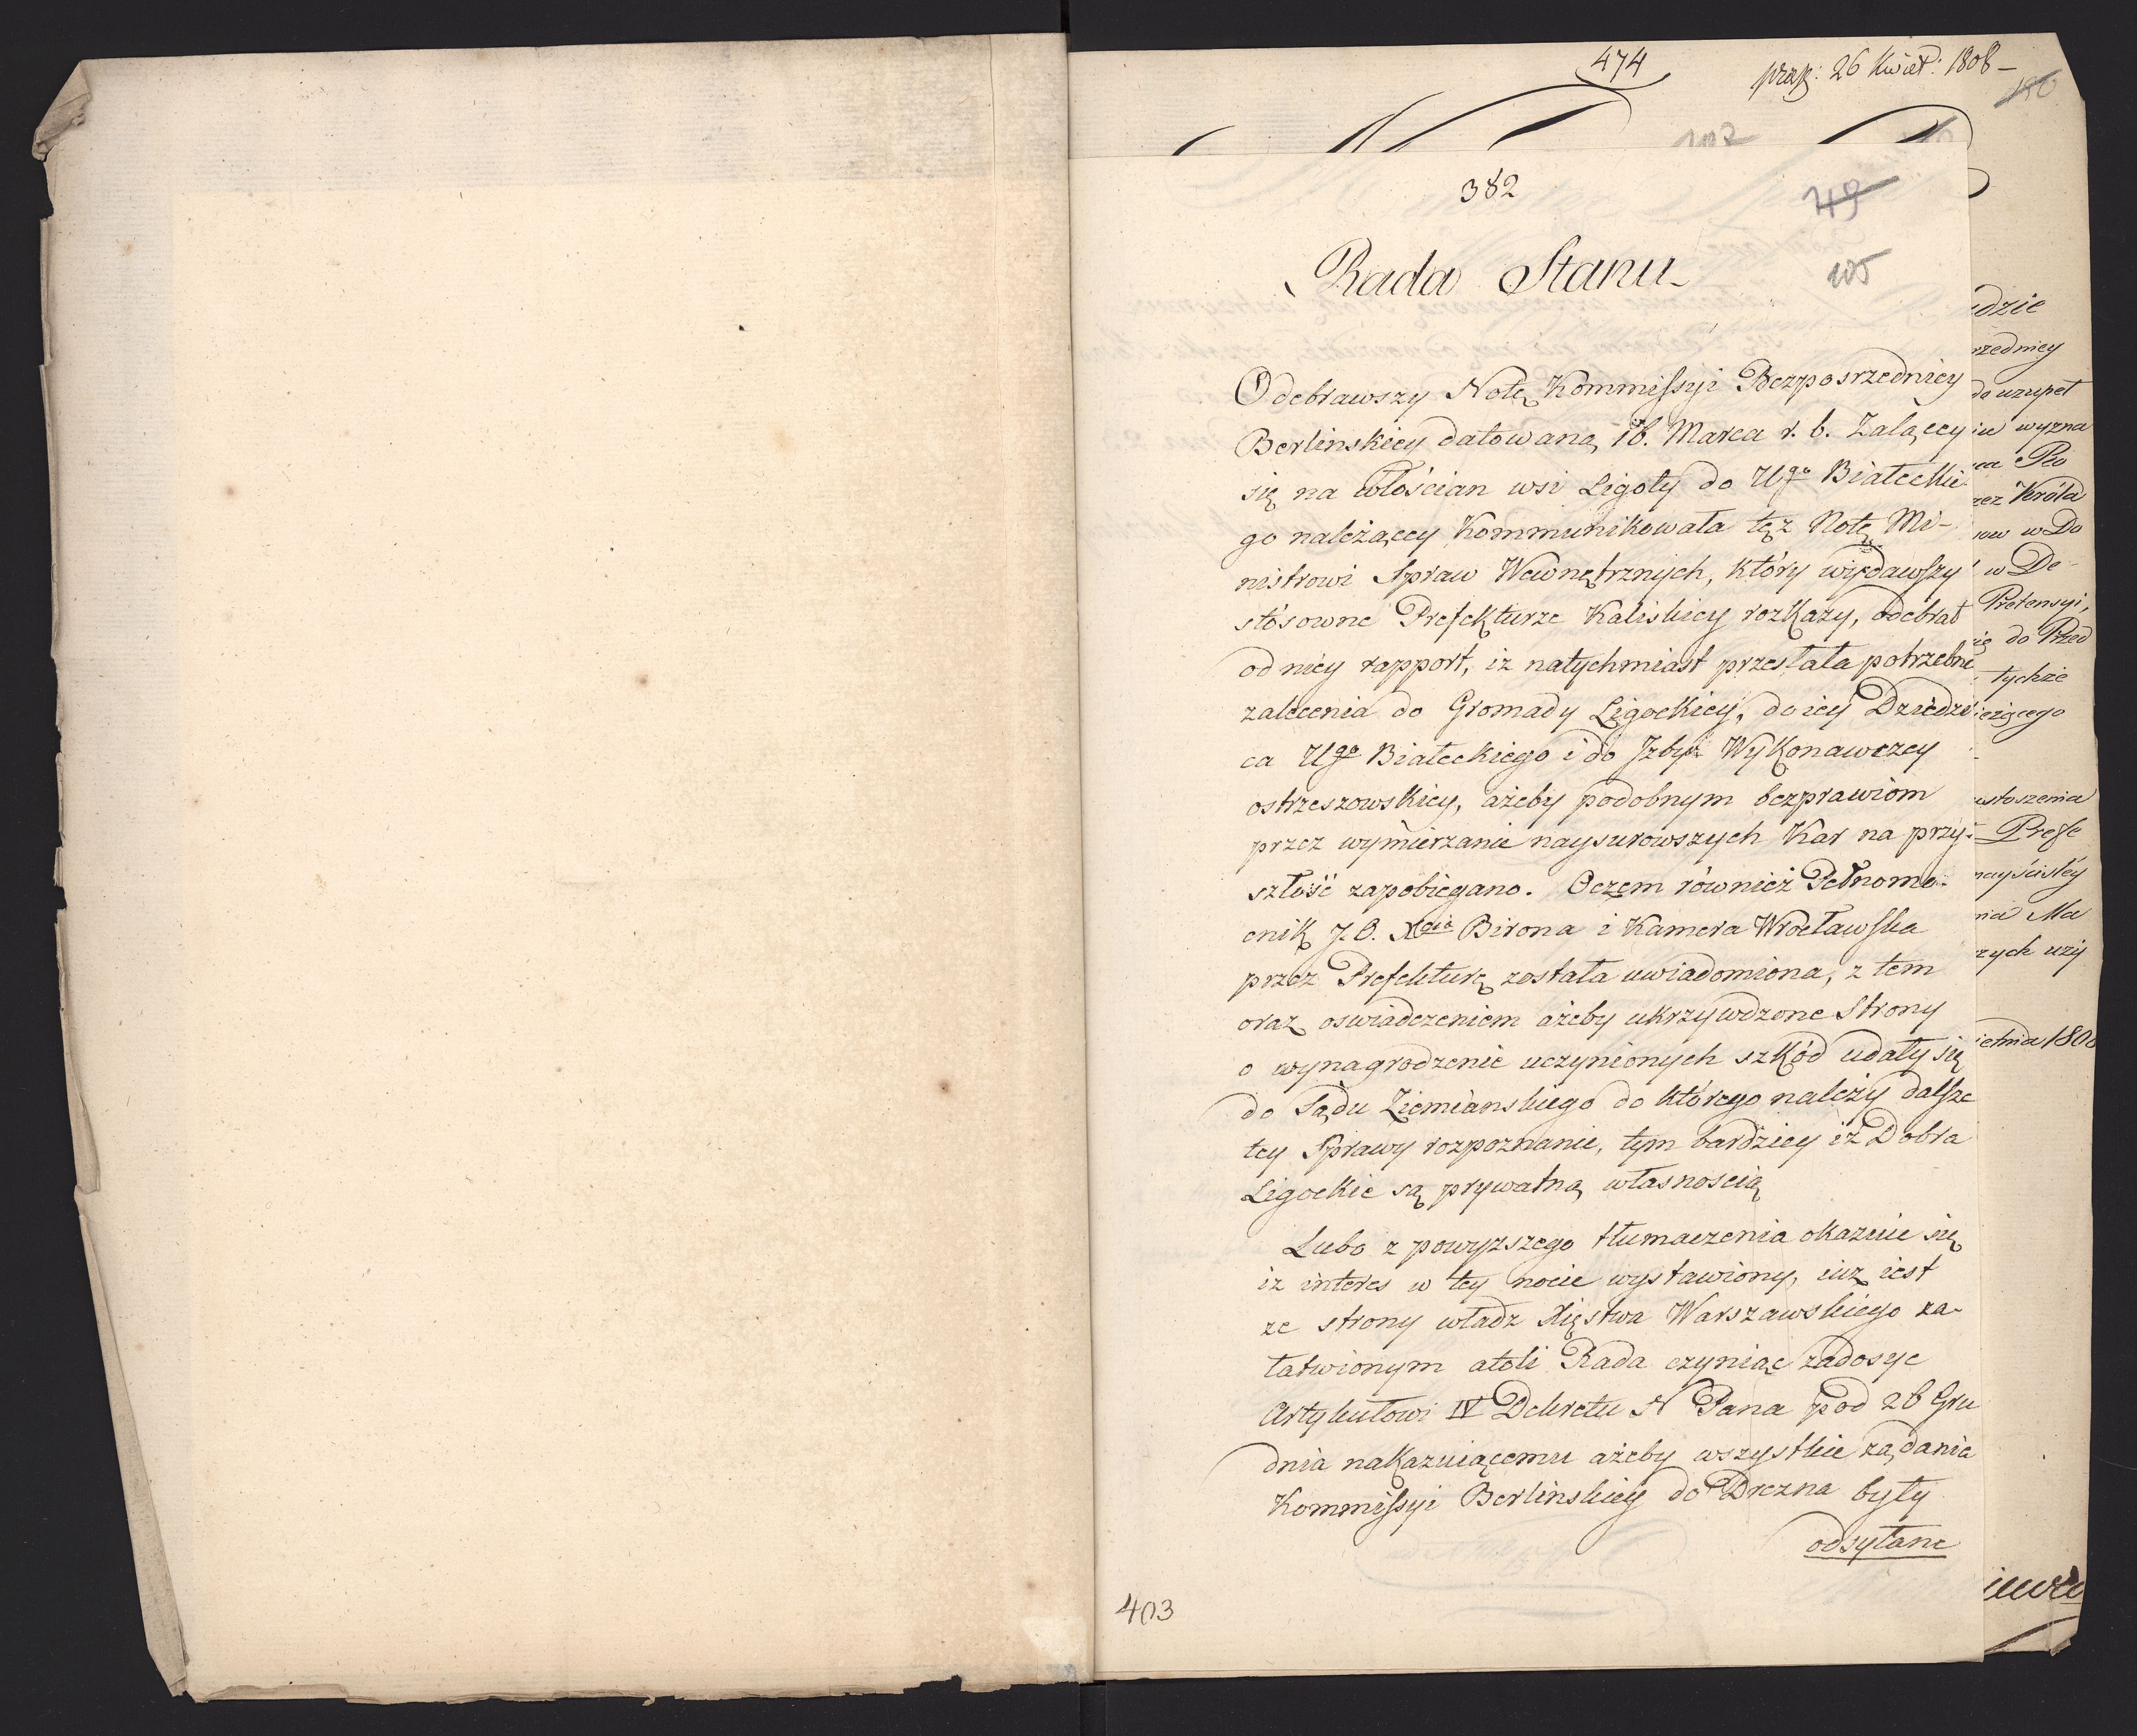 474
prap: 26 Kwiet: 1808 –
150
382
749
105
Rada Stanu
Odebrawszy Notę Kommissyi Bezposrzedniey
Berlinskiey datowaną 16. Marca r. b. Zalącey
się na włościan wsi Ligoty do Ugo Białeckie
go należącey Kommunikowała tęż Notę Mi-
nistrowi Spraw Wewnętrznych, który wydawszy
stósowne Prefekturze Kaliskiey rozkazy, odebrał
od niey rapport, iz natychmiast przesłała potrzebne
zalecenia do Gromady Ligockiey, do iey Dziedzi
ca Ugo Białeckiego i do Jzby Wykonawczey
ostrzeszowskiey, ażeby podobnym bezprawiom
przez wymierzanie naysurowszych Kar na przy-
szłość zapobiegano. Oczem również Pełnomo-
cnik J. O. Xcia Birona i Kamera Wrocławska
przez Prefekturę została uwiadomiona, z tem
oraz oswiadczeniem ażeby ukrzywdzone Strony
o wynagrodzenie uczynionych szkód udały się
do Sądu Ziemianskiego do którego należy dalsze
tey Sprawy rozpoznanie, tym bardziey iż Dobra
Ligockie są prywatną własnoscią
Lubo z powyzszego tłumaczenia okazuie się
iz interes w tey nocie wystawiony, iuz iest
ze strony władz Xięstwa Warszawskiego za-
łatwionym atoli Rada czyniąc zadosyc
Artykułowi IV Dekretu N Pana pod 26 Gru
dnia nakazuiącemu ażeby wszystkie ządania
Kommissyi Berlinskiey do Drezna były
odsyłane
403
dzie
rzedniey
do uzupeł
iu wyzna
zez Króla
w Do
w De-
Pretensyi,
ię do Przed
tychże
ieżącego
ustoszenia
Prefe
nayściśley
nia Ma
zych uzy
ietnia 1808